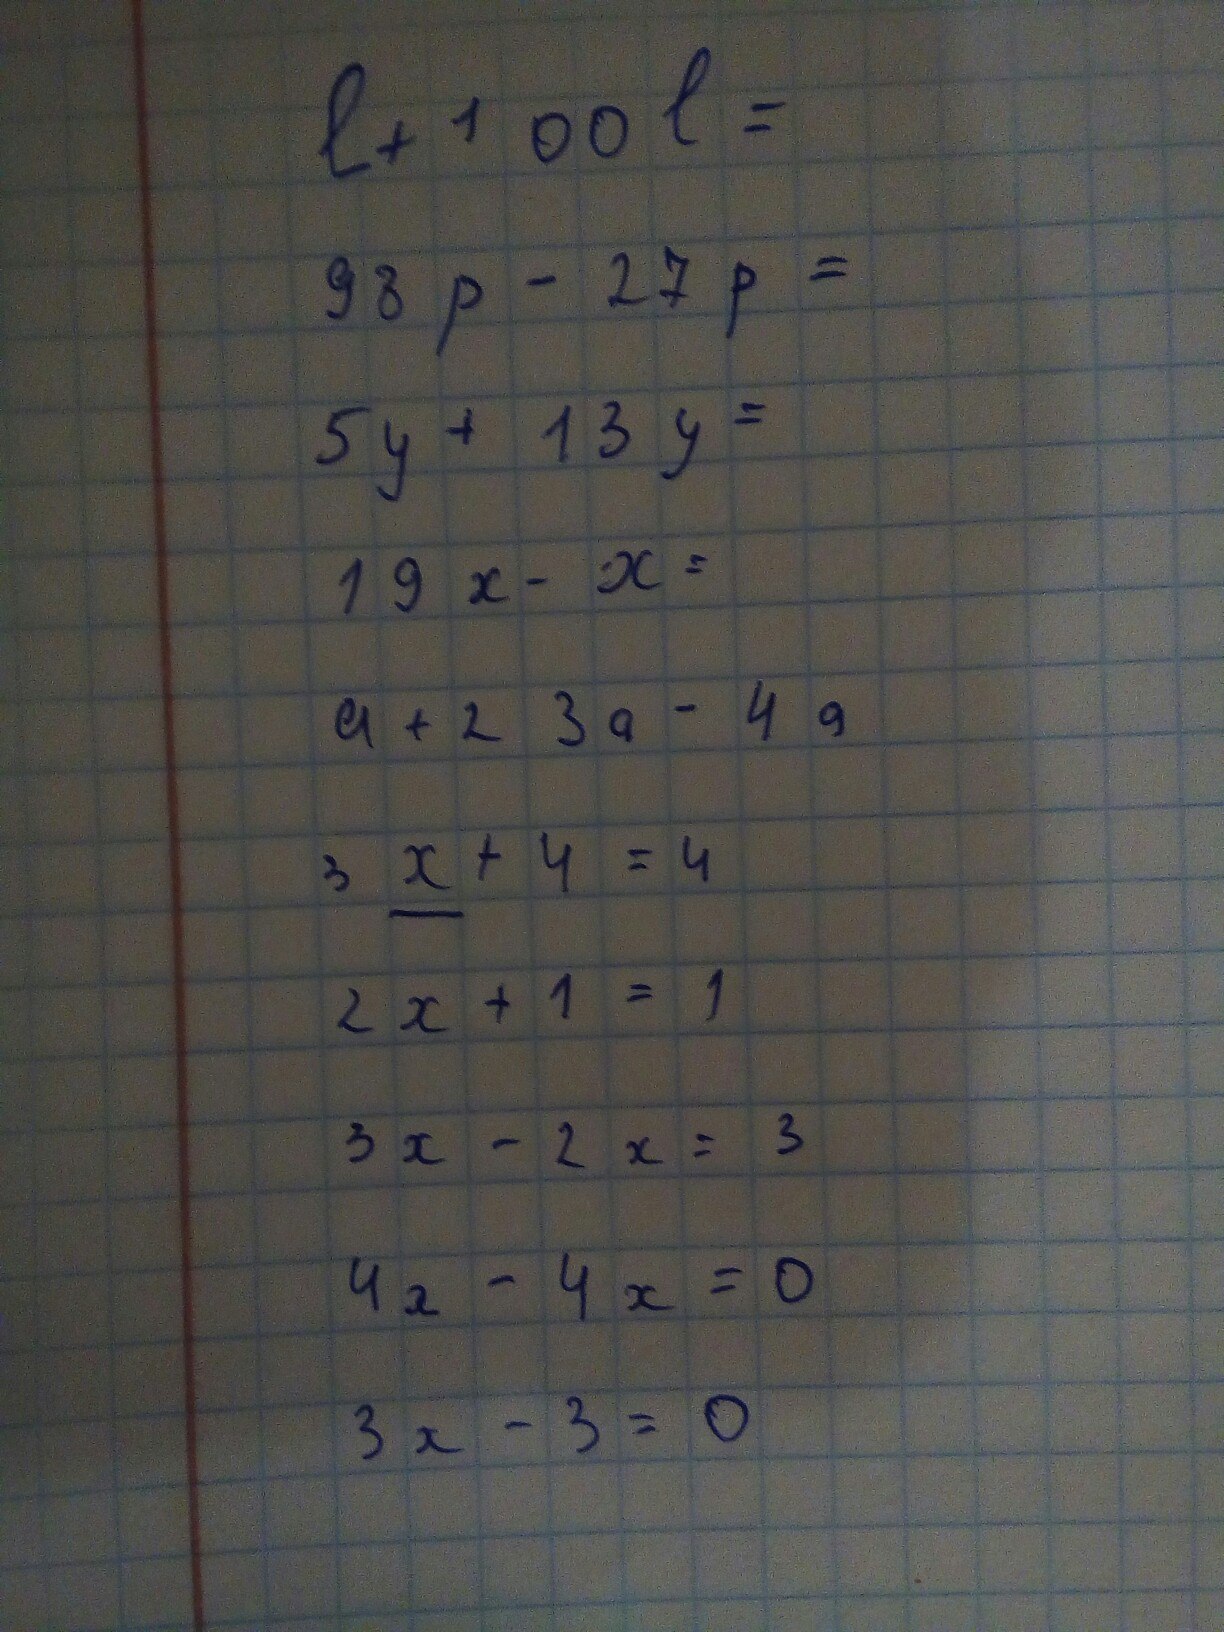 l + 100 l =
98 p - 27 p =
5y + 13 y =
19 x - x =
a + 23a - 4a
3 x + 4 = 4
2x + 1 = 1
3x - 2x = 3
4x - 4x = 0
3x - 3 = 0